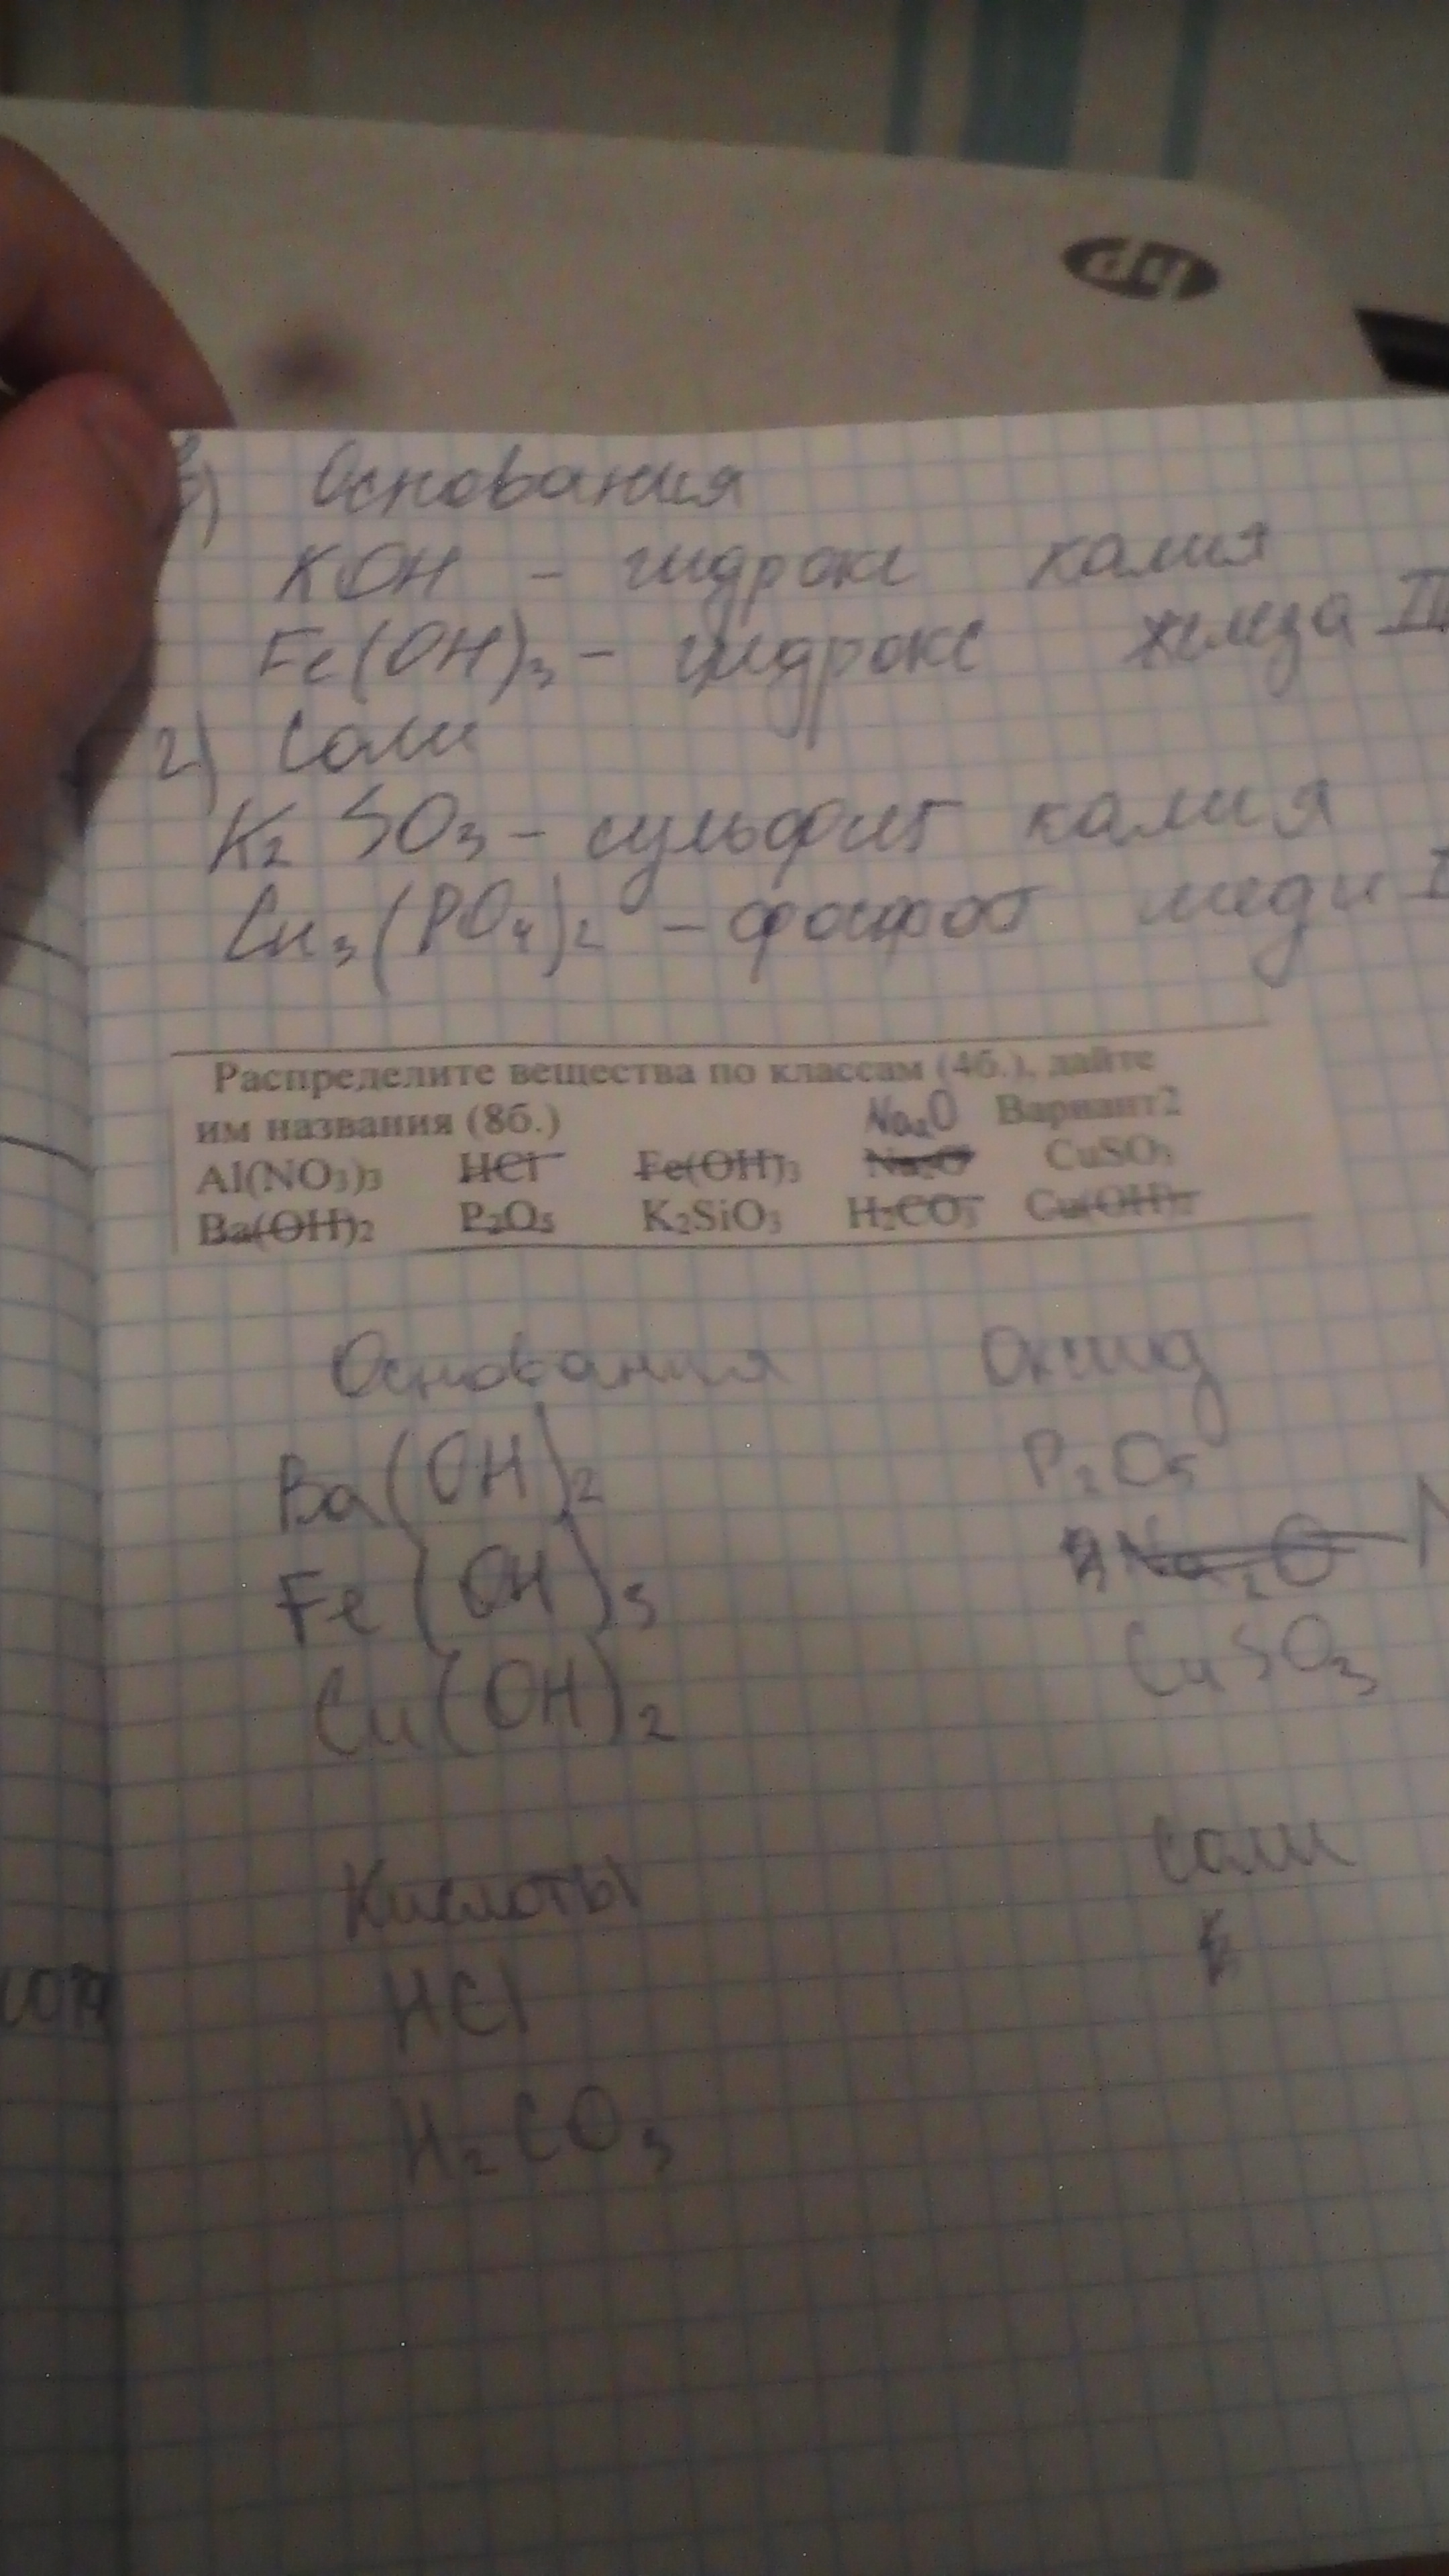 в) Основания
KOH - гидрокс калия
Fe(OH)3 - гидрокс железа III
г) Соли
K2 SO3 - сульфит калия
Cu3(PO4)2 - фосфат меди
Распределите вещества по классам (4б.), дайте
им названия (8б.) Na2O Вариант2
Al(NO3)3 HCl Fe(OH)3 Na2O CuSO3
Ba(OH)2 P2O5 K2SiO3 H2CO3 Cu(OH)2
Основания Оксид
Ba(OH)2 P2O5
Fe(OH)3 Na2O
Cu(OH)2 CuSO3
Кислоты Соли
HCl
H2CO3
hp